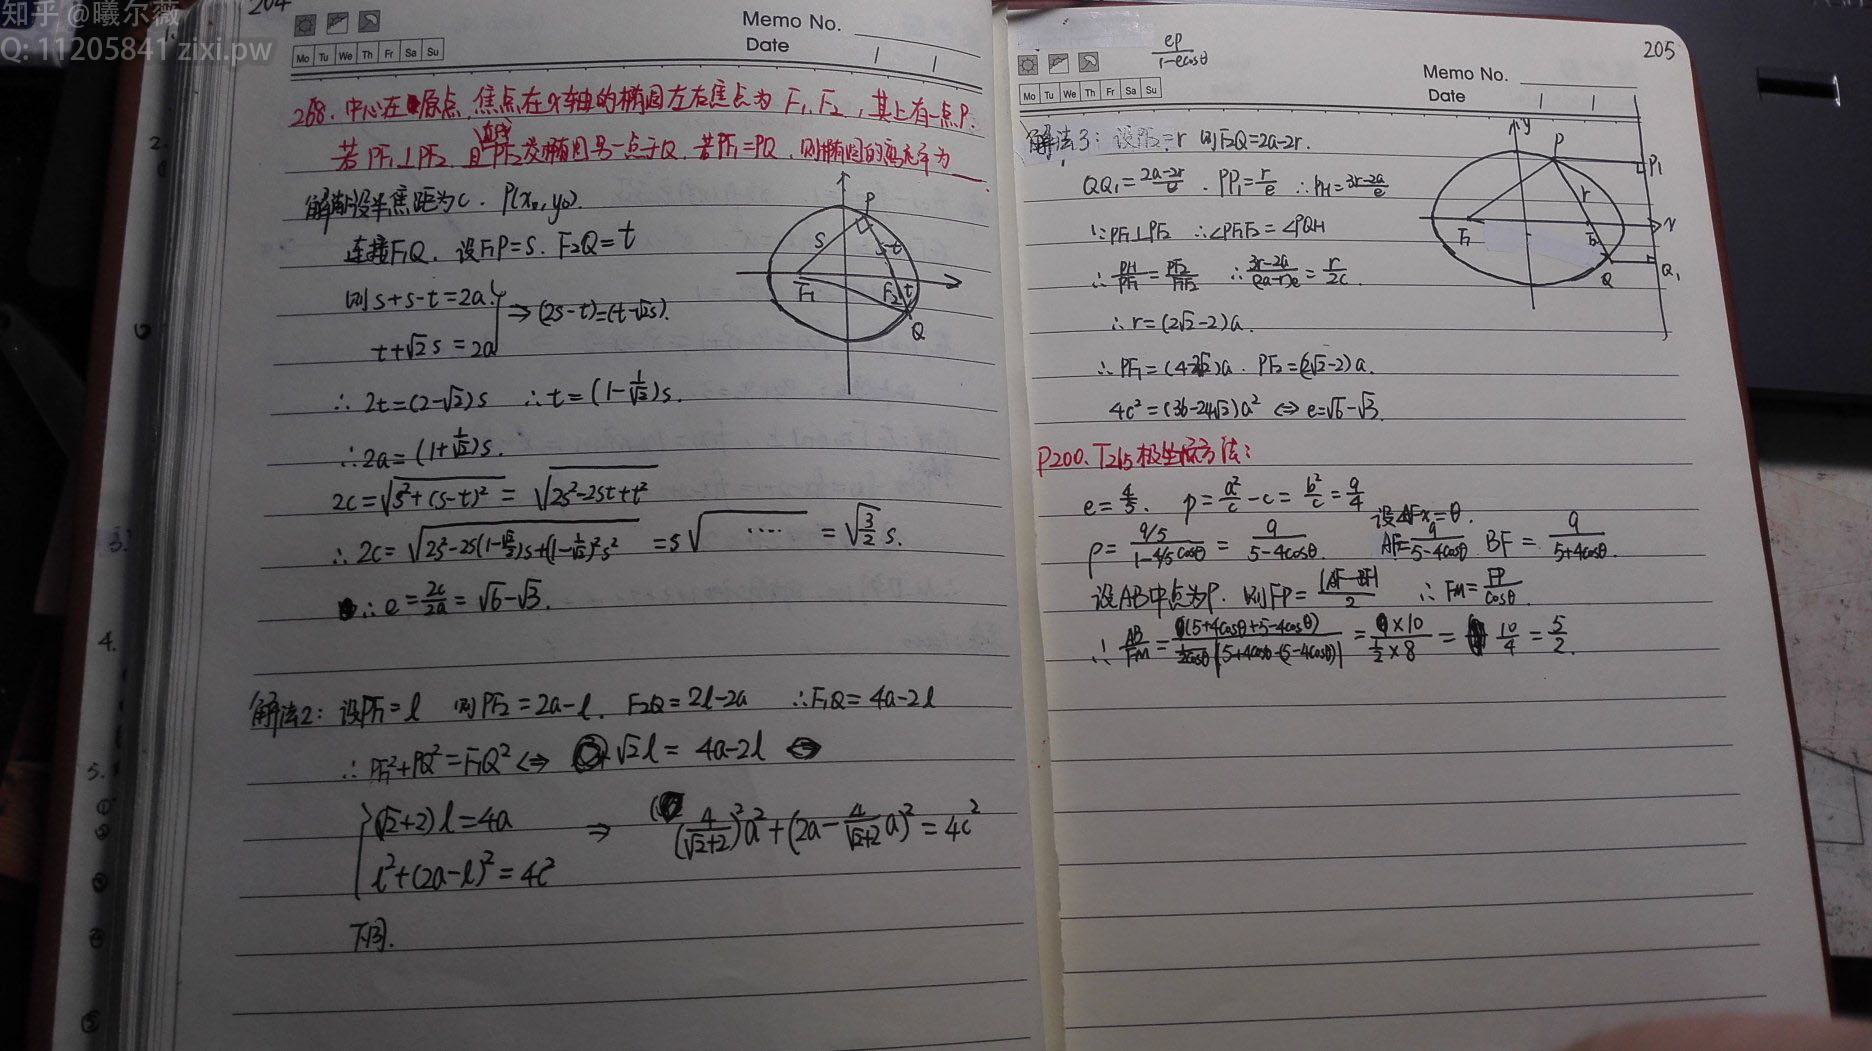 知乎 @曦尔薇
Q: 11205841 zixi.pw
204
Memo No.
Date
Mo Tu We Th Fr Sa Su
268. 中心在原点,焦点在x轴的椭圆左右焦点为 F₁, F₂ , 其上有一点P.
若 PF₁⊥PF₂ 且直线PF₂交椭圆另一点于Q, 若PF₁=PQ, 则椭圆的离心率为____
解:设半焦距为c. P(x₀, y₀).
连接F₁Q, 设F₁P=s. F₂Q=t
则s+s-t=2a
t+√2 s=2a
⇒(2s-t)=(t+√2s).
∴ 2t=(2-√2)s ∴t=(1-1/√2)s.
∴2a=(1+1/√2)s.
2c=√(s²+(s-t)²) = √(2s²-2st+t²)
∴ 2c=√(2s²-2s(1-√2/2)s+(1-1/√2)²s²) =s√(····) =√(3/2) s.
∴ e=2c/2a=√6-√3.
P
S
s-t
F₁
F₂
t
Q
解法2: 设PF₁=l 则PF₂=2a-l. F₂Q=2l-2a ∴F₁Q=4a-2l
∴ PF₁²+PQ²=F₁Q² ⇔ √2 l=4a-2l ⇔
(√2+2)l=4a
l²+(2a-l)²=4c²
⇒ (4/(√2+2))²a²+(2a-4/(√2+2) a)²=4c²
下同.
2.
3.
4.
5.
①
②
③
④
⑤
ep/(1-ecosθ)
205
Memo No.
Date
Mo Tu We Th Fr Sa Su
解法3: 设PF₂=r 则F₂Q=2a-2r.
QQ₁=(2a-2r)/e . PP₁=r/e ∴PH=(3r-2a)/e
∵PF₁⊥PF₂ ∴∠PF₁F₂=∠PQH
∴ PH/PF₁=PF₂/F₁F₂ ∴(3r-2a)/((2a-r)e)=r/2c.
∴r=(2√2-2)a.
∴ PF₁=(4-2√2)a. PF₂=(2√2-2)a.
4c²=(36-24√2)a² ⇔ e=√6-√3.
y
P
P₁
r
F₁
F₂
Q
Q₁
P200. T265 极坐标方法:
e=4/5. p=a²/c-c=b²/c=9/4
设∠AFx=θ.
ρ=(9/5)/(1-4/5cosθ)=9/(5-4cosθ). AF=9/(5-4cosθ) BF=9/(5+4cosθ).
设AB中点为P. 则FP=|AF-BF|/2 ∴ FM=FP/cosθ.
∴ AB/FM=(5+4cosθ+5-4cosθ)/(1/2cosθ |5+4cosθ-(5-4cosθ)|)=(1×10)/(1/2×8)=10/4=5/2.